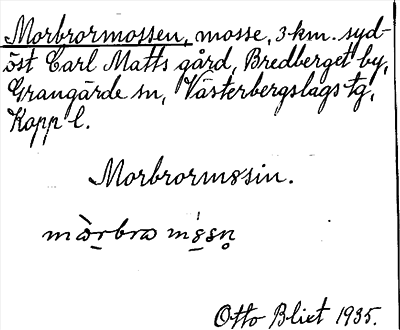 Morbrormossen, mosse, 3 km. syd-
öst Carl Matts gård, Bredberget by,
Grangärde sn, Västerbergslags tg,
Kopp l.
Morbrormossin.
Otto Blixt 1935.